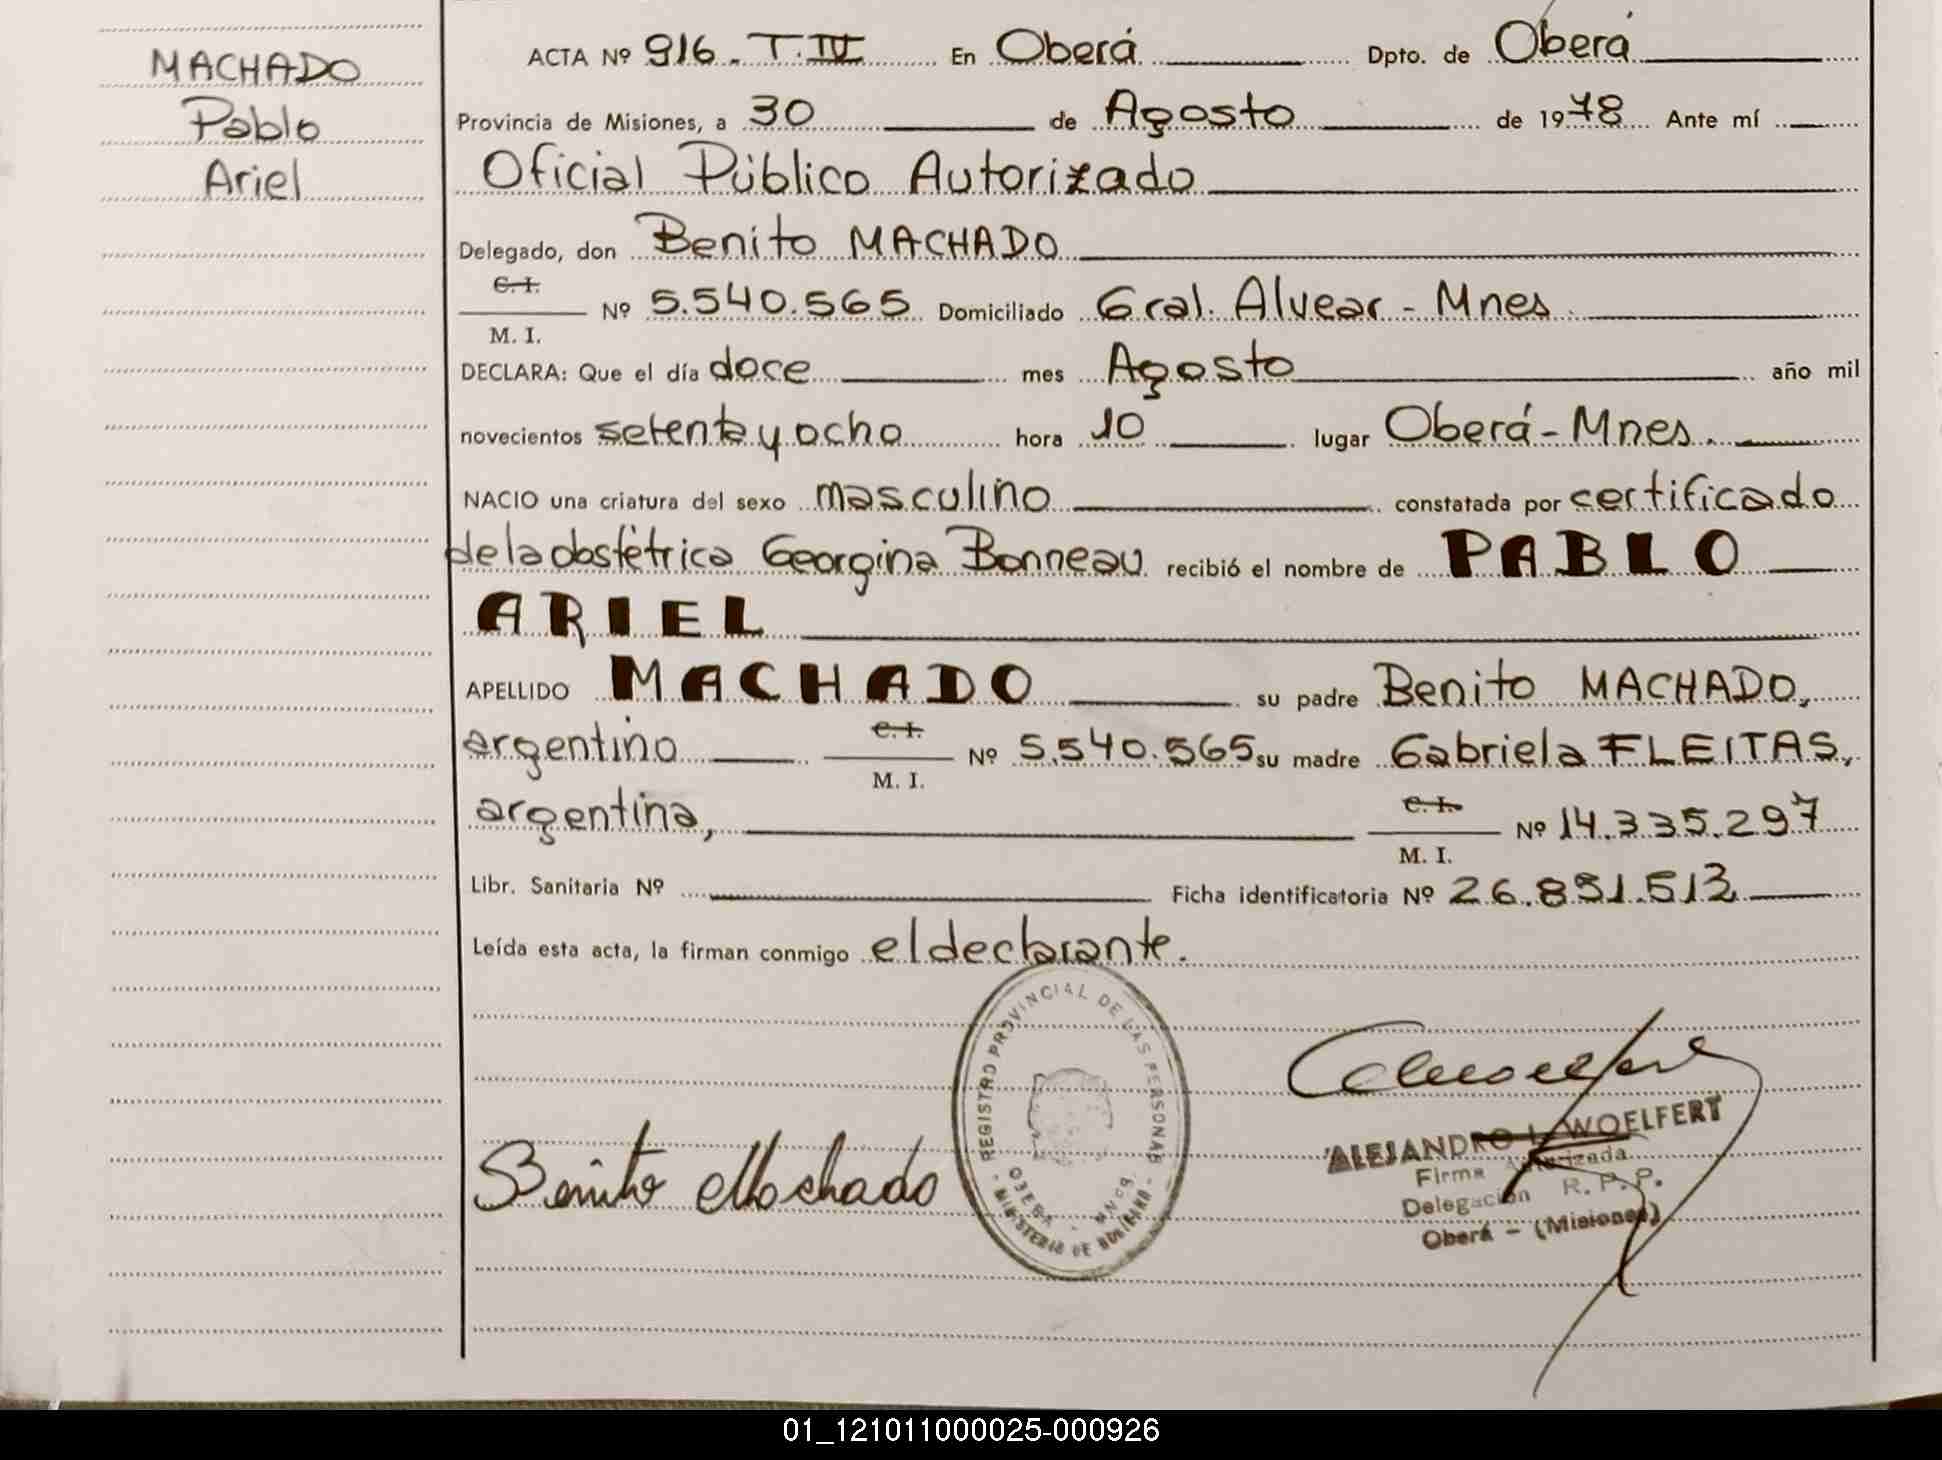 MACHADO
Pablo
Ariel
ACTA Nº 916. T.IV En Oberá Dpto. de Oberá
Provincia de Misiones, a 30 de Agosto de 1978 Ante mí
Oficial Público Autorizado
Delegado, don Benito MACHADO
C.I.
M. I.
Nº 5.540.565 Domiciliado Gral. Alvear - Mnes.
DECLARA: Que el día doce mes Agosto año mil
novecientos setenta y ocho hora 10 lugar Oberá - Mnes.
NACIO una criatura del sexo masculino constatada por certificado
de la obstétrica Georgina Bonneau recibió el nombre de PABLO
ARIEL
APELLIDO MACHADO su padre Benito MACHADO,
argentino C.I. M. I. Nº 5.540.565 su madre Gabriela FLEITAS,
argentina, C.I. M. I. Nº 14.335.297
Libr. Sanitaria Nº Ficha identificatoria Nº 26.851.512
Leída esta acta, la firman conmigo el declarante.
REGISTRO PROVINCIAL DE LAS PERSONAS
OBERA - MNES.
- MINISTERIO DE GOBIERNO -
Benito Machado
ALEJANDRO L. WOELFERT
Firma Autorizada
Delegación R. P. P.
Oberá - (Misiones)
01_121011000025-000926